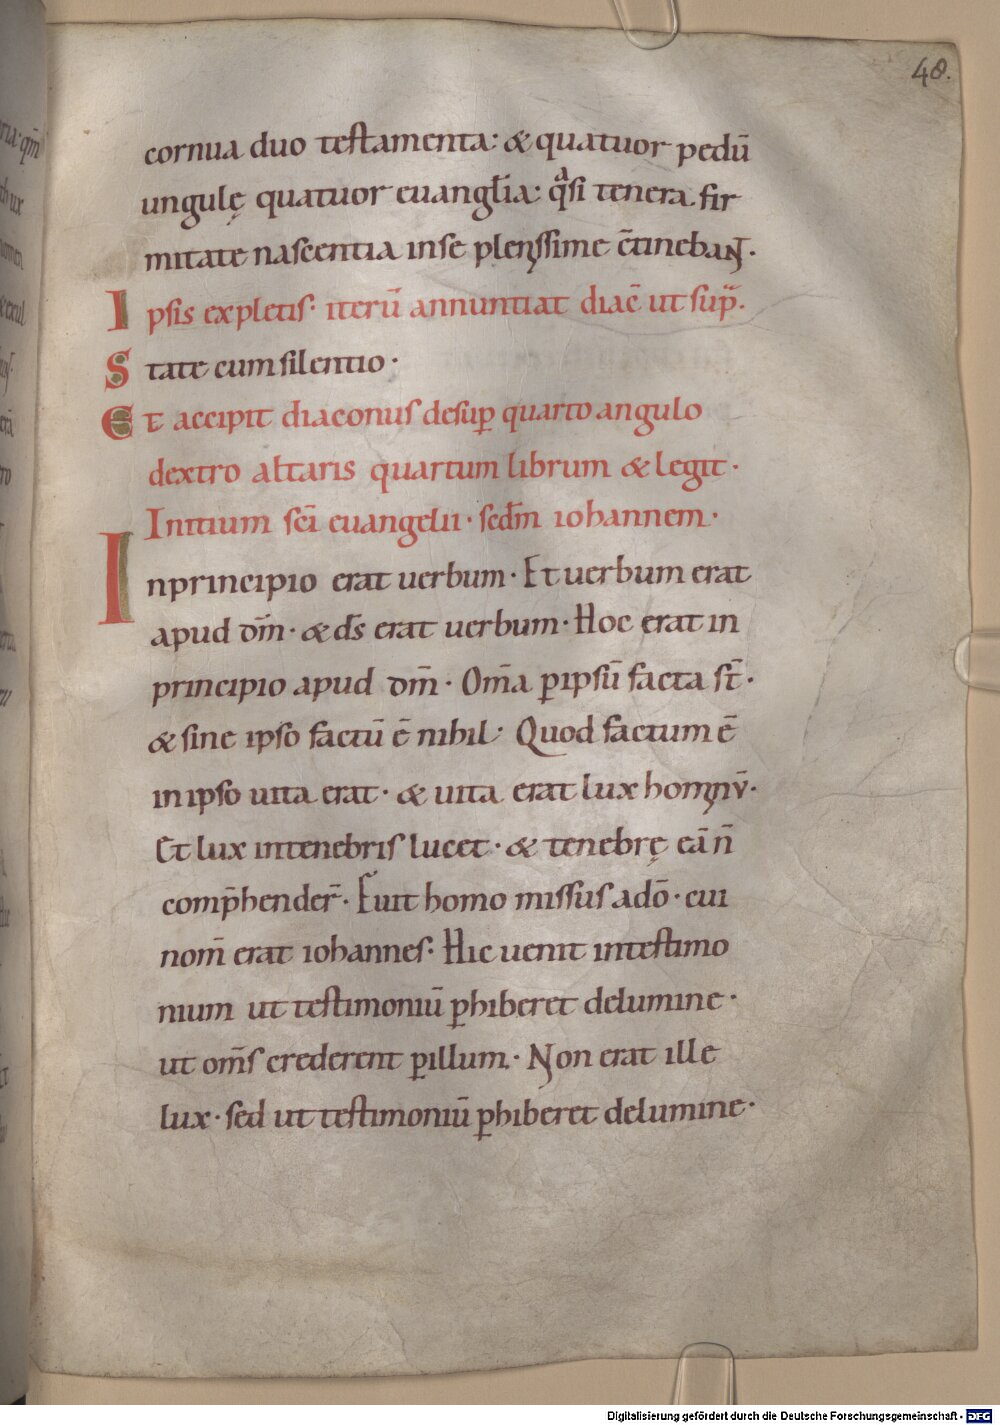 48.
cornua duo testamenta: & quatuor pedū
ungulę quatuor euangl̄ia: qᵃsi tenera fir
mitate nascentia inse plenissime c̄tinebant.
Ipsis expletis. iterū annuntiat diac̄ ut sup̄.
State cum silentio.
Et accipit diaconus desup̱ quarto angulo
dextro altaris quartum librum & legit.
Initium sc̄i euangelii. secd̄m iohannem.
Inprincipio erat uerbum. Et uerbum erat
apud dm̄. & ds̄ erat uerbum. Hoc erat in
principio apud dm̄. Om̄a p̱ipsū facta st̄.
& sine ipso factū ē nihil. Quod factum ē
inipso uita erat. & uita erat lux hominū.
Et lux intenebris lucet. & tenebrę eā n̄
comp̄hender̄. Fuit homo missus adō. cui
nom̄ erat iohannes. Hic uenit intestimo
nium ut testimoniū p̱hiberet delumine.
ut om̄s crederent p̱illum. Non erat ille
lux. sed ut testimoniū p̱hiberet delumine.
Digitalisierung gefördert durch die Deutsche Forschungsgemeinschaft - DFG